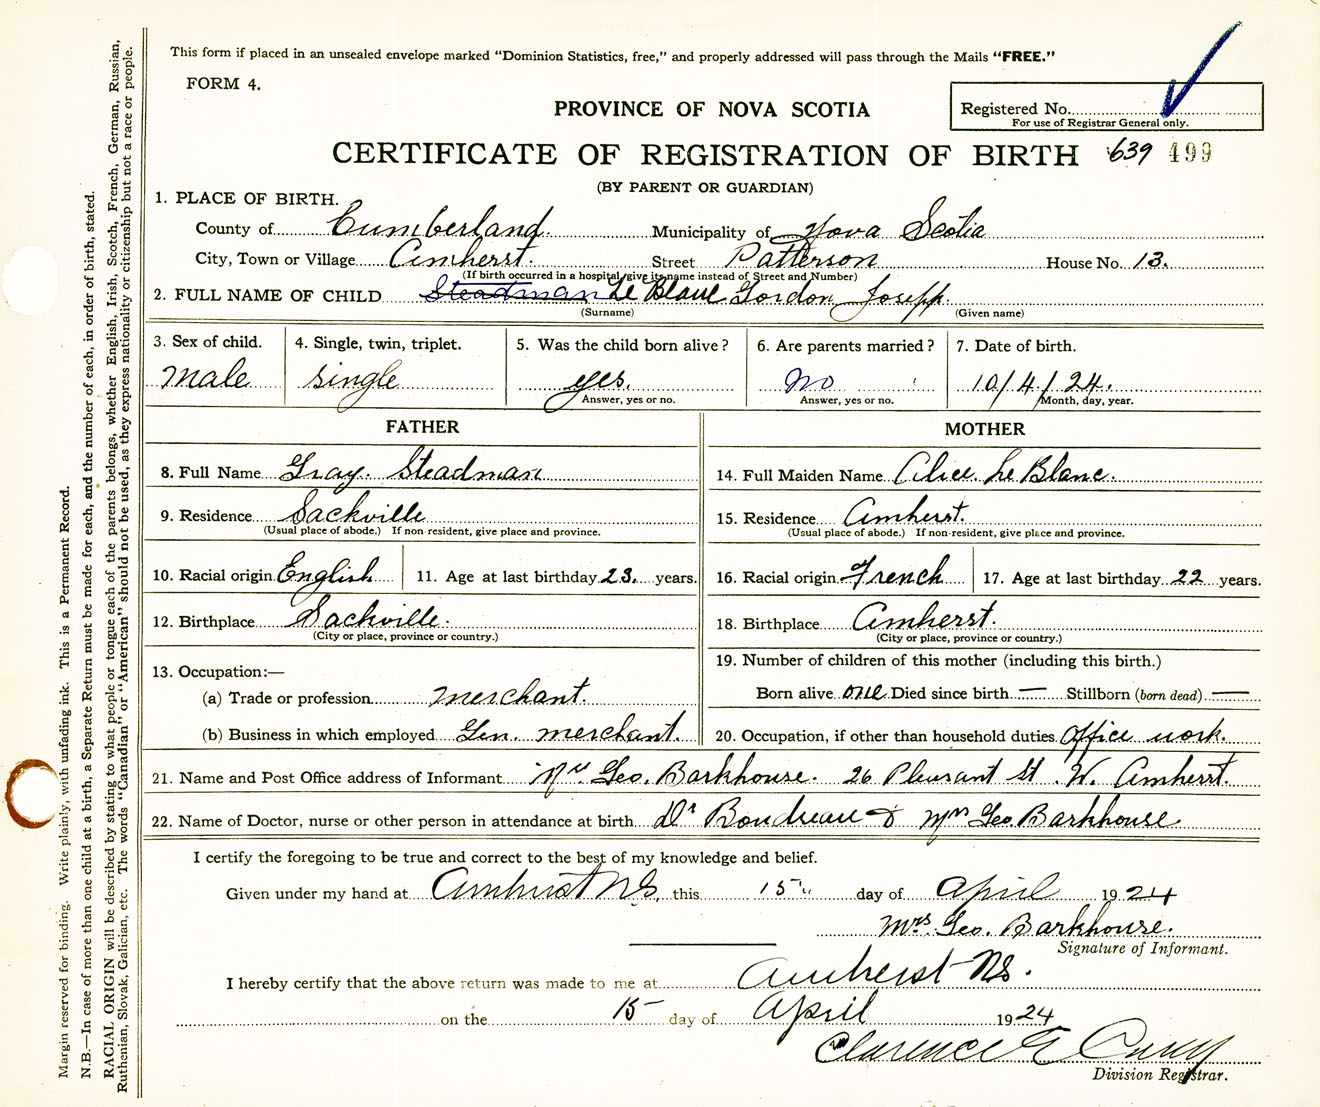 This form if placed in an unsealed envelope marked "Dominion Statistics, free," and properly addressed will pass through the Mails "FREE."
FORM 4.
PROVINCE OF NOVA SCOTIA
Registered No.
For use of Registrar General only.
CERTIFICATE OF REGISTRATION OF BIRTH 639 499
(BY PARENT OR GUARDIAN)
1. PLACE OF BIRTH.
County of Cumberland. Municipality of Nova Scotia
City, Town or Village Amherst. Street Patterson House No. 13.
(If birth occurred in a hospital, give its name instead of Street and Number)
2. FULL NAME OF CHILD Steadman Le Blanc Gordon Joseph.
(Surname) (Given name)
3. Sex of child. 4. Single, twin, triplet. 5. Was the child born alive? 6. Are parents married? 7. Date of birth.
Male single yes. No 10/4/24.
Answer, yes or no. Answer, yes or no. Month, day, year.
FATHER MOTHER
8. Full Name Gray. Steadman 14. Full Maiden Name Alice Le Blanc.
9. Residence Sackville 15. Residence Amherst.
(Usual place of abode.) If non-resident, give place and province. (Usual place of abode.) If non-resident, give place and province.
10. Racial origin English 11. Age at last birthday 23. years. 16. Racial origin French 17. Age at last birthday 22 years.
12. Birthplace Sackville. 18. Birthplace Amherst.
(City or place, province or country.) (City or place, province or country.)
13. Occupation:— 19. Number of children of this mother (including this birth.)
(a) Trade or profession merchant. Born alive one Died since birth — Stillborn (born dead) —
(b) Business in which employed Gen. merchant. 20. Occupation, if other than household duties Office work.
21. Name and Post Office address of Informant Mrs Geo. Barkhouse. 26 Pleasant St. W. Amherst.
22. Name of Doctor, nurse or other person in attendance at birth Dr Boudreau & Mrs Geo. Barkhouse
I certify the foregoing to be true and correct to the best of my knowledge and belief.
Given under my hand at Amherst N.S. this 15th day of April 1924
Mrs. Geo. Barkhouse.
Signature of Informant.
I hereby certify that the above return was made to me at Amherst N.S.
on the 15 day of April 1924
Clarence E
Division Registrar.
Margin reserved for binding. Write plainly, with unfading ink. This is a Permanent Record.
N.B.—In case of more than one child at a birth, a Separate Return must be made for each, and the number of each, in order of birth, stated.
RACIAL ORIGIN will be described by stating to what people or tongue each of the parents belongs, whether English, Irish, Scotch, French, German, Russian,
Ruthenian, Slovak, Galician, etc. The words "Canadian" or "American" should not be used, as they express nationality or citizenship but not a race or people.